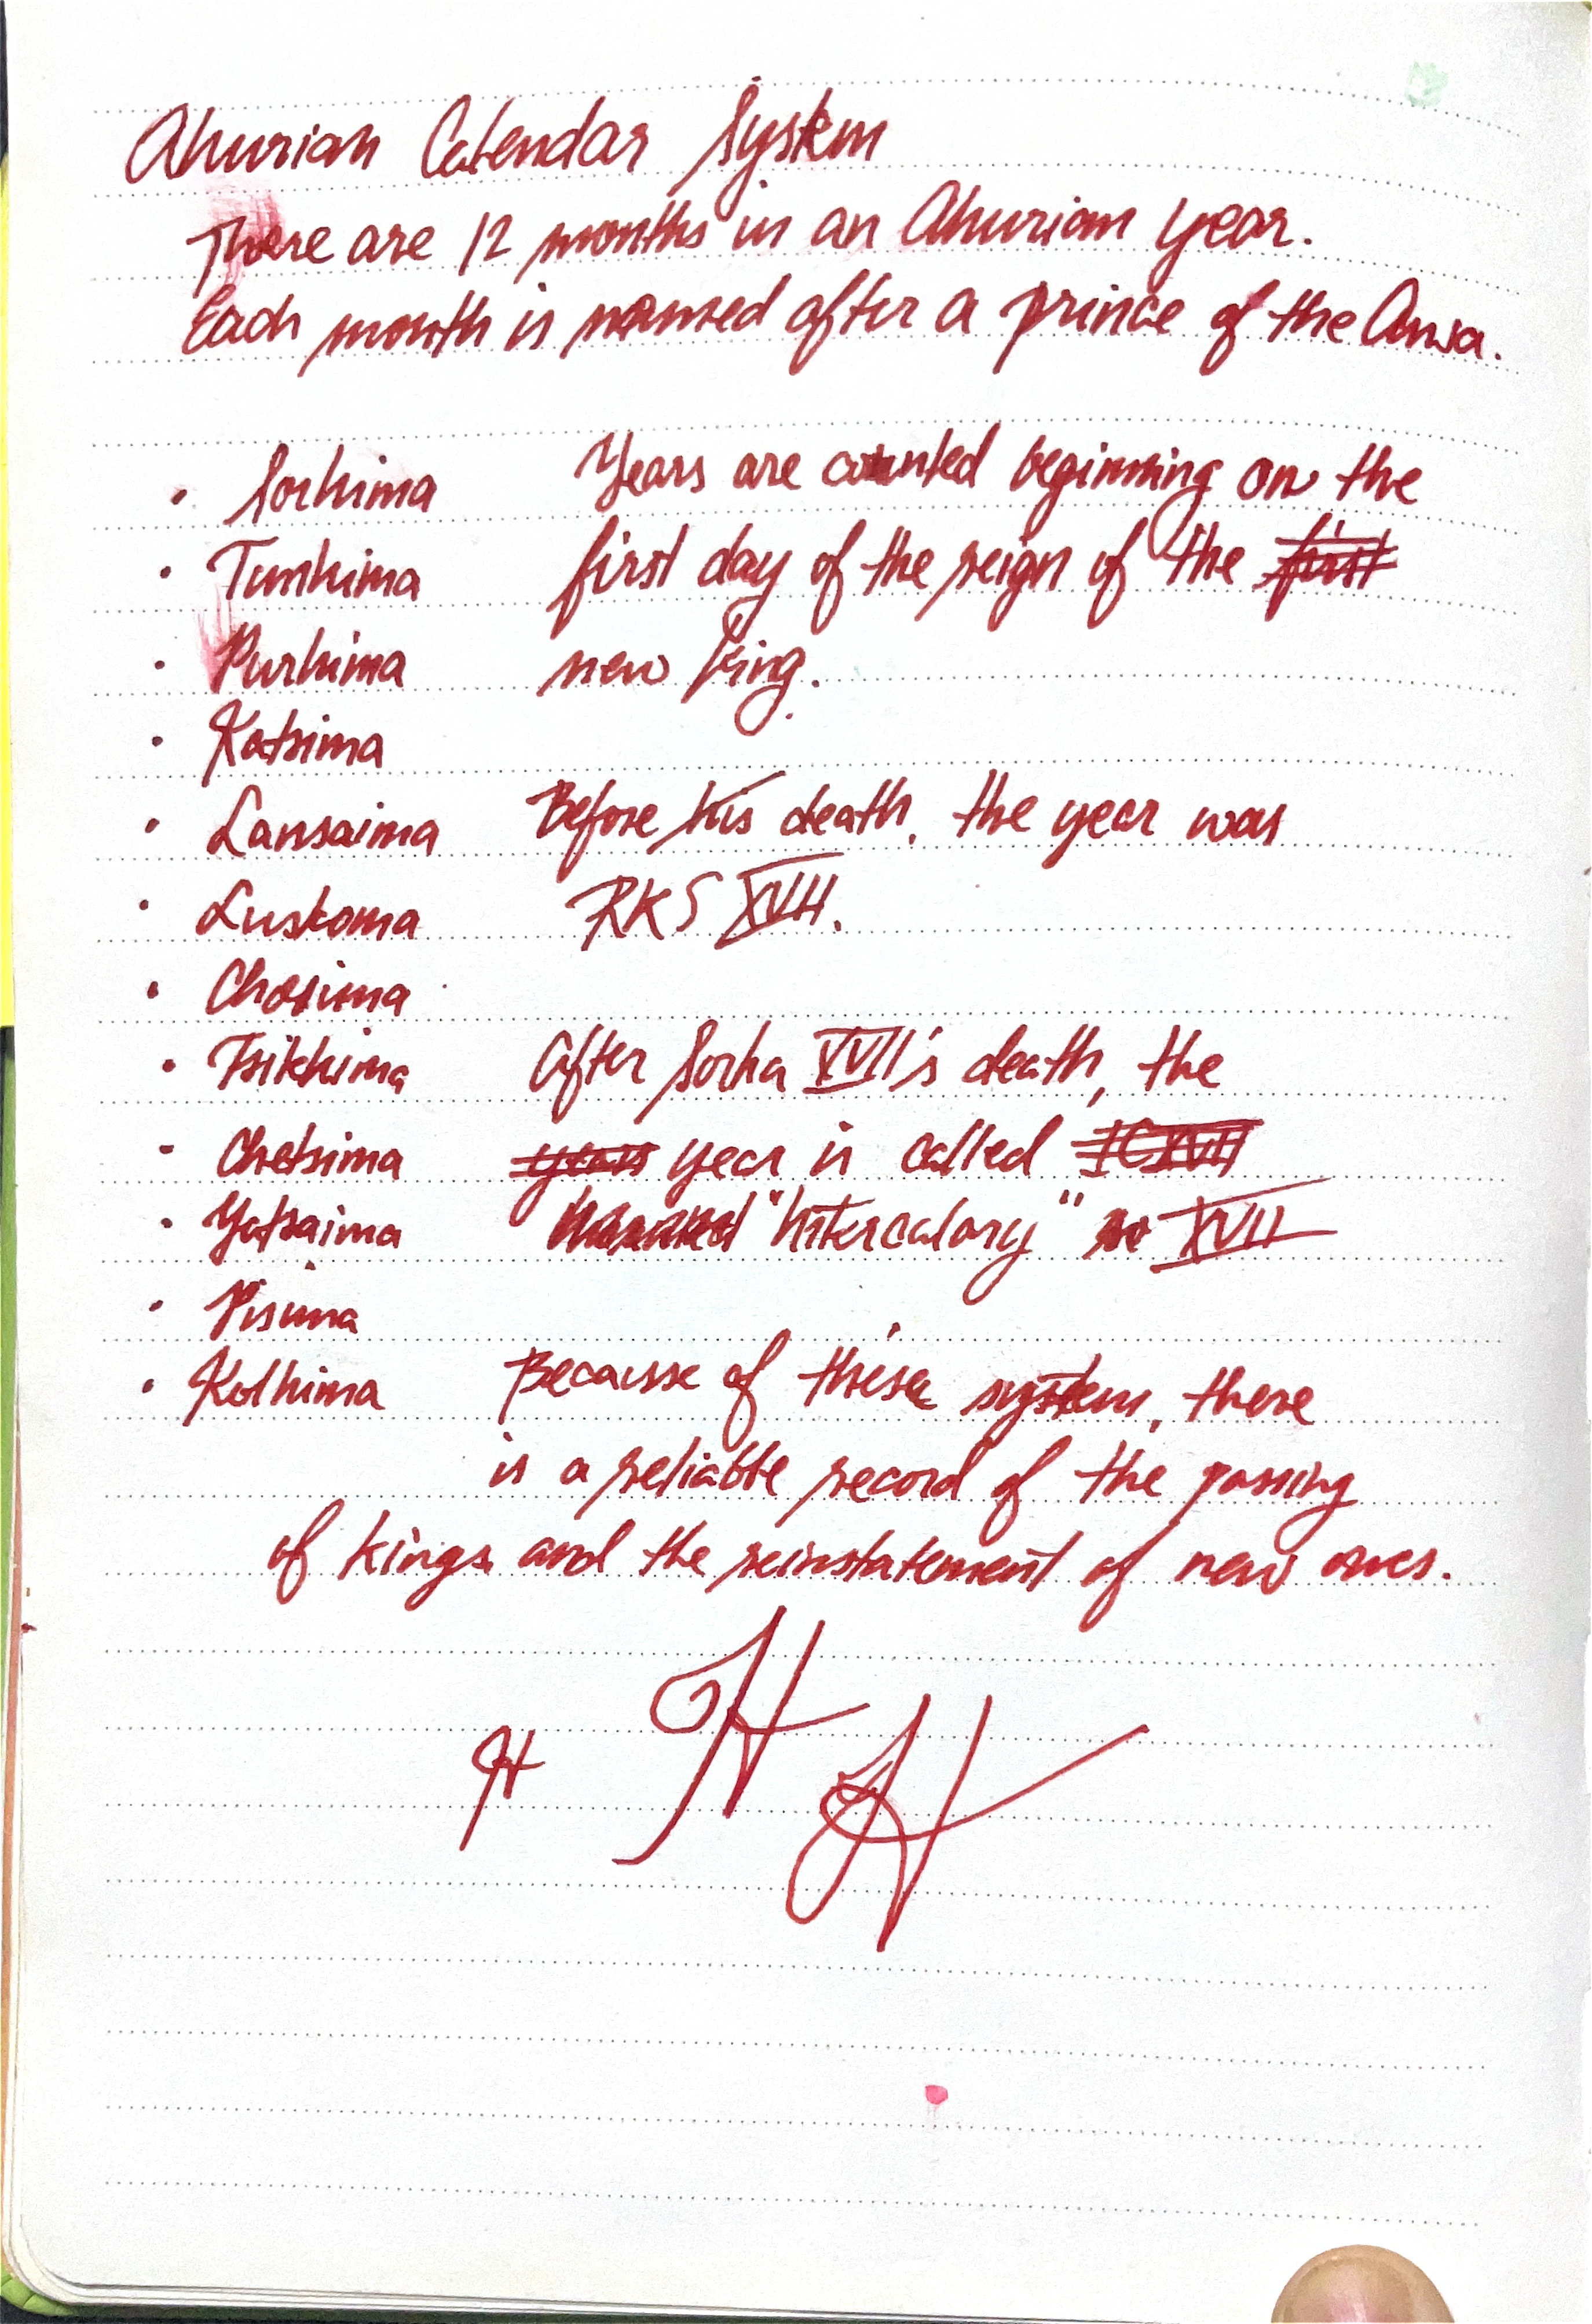 Ahurian Calendar System
There are 12 months in an Ahurian year.
Each month is named after a prince of the Anwa.
• Sorhima
• Tumhima
• Purhima
• Katsima
• Lansaima
• Luskoma
• Chosima
• Tsikhima
- Chetsima
• Yatsaima
• Pisima
• Kolhima
Years are counted beginning on the
first day of the reign of the first
new king.
Before his death, the year was
RKS XVII.
After Sorha XVII's death, the
years year is called IC XVII
"Intercalary" XVII
Because of these system, there
is a reliable record of the passing
of kings and the reinstatement of new ones.
H H H